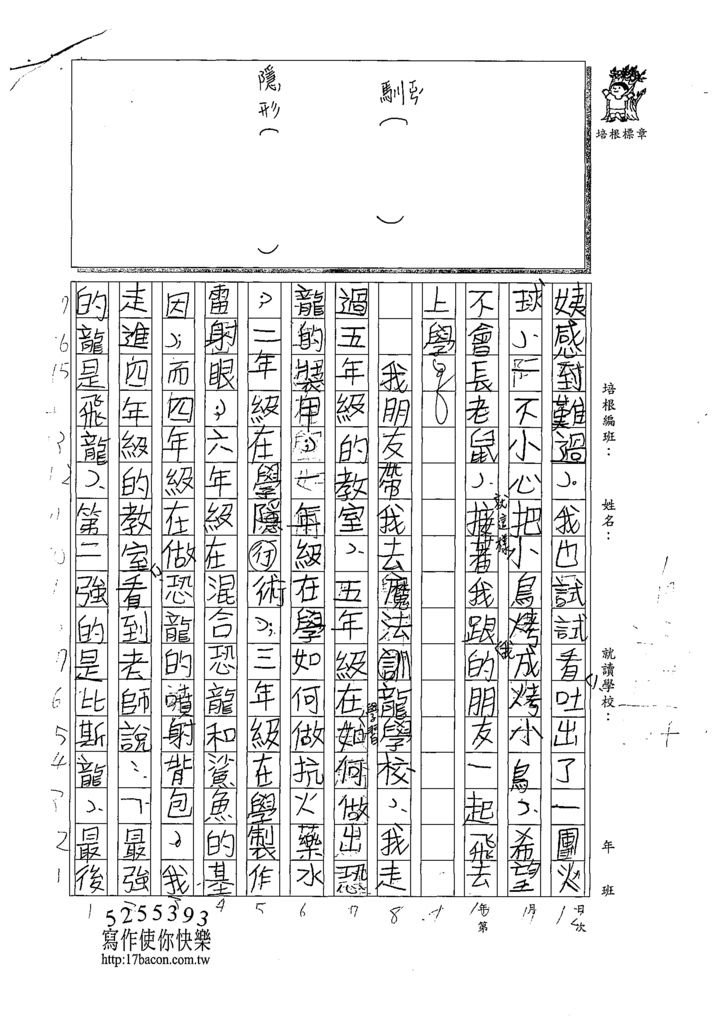 馴
隱形
培根標章
培根編班：
姓名：
就讀學校：
年 班
姨感到難過。我也試試看吐出了一團火
球，一不小心把小鳥烤成烤小鳥，希望
不會長老鼠，就這樣接著我跟我的朋友一起飛去
上學了
我朋友帶我去魔法訓龍學校，我走
過五年級的教室，五年級在學習如何做出恐
龍的裝甲；一年級在學如何做抗火藥水
；二年級在學隱術；三年級在學製作
雷射眼；六年級在混合恐龍和鯊魚的基
因；而四年級在做恐龍的噴射背包。我
走進四年級的教室，看到老師說：「最強
的龍是飛龍，第二強的是比斯龍，最後
5255393
寫作使你快樂
http:17bacon.com.tw